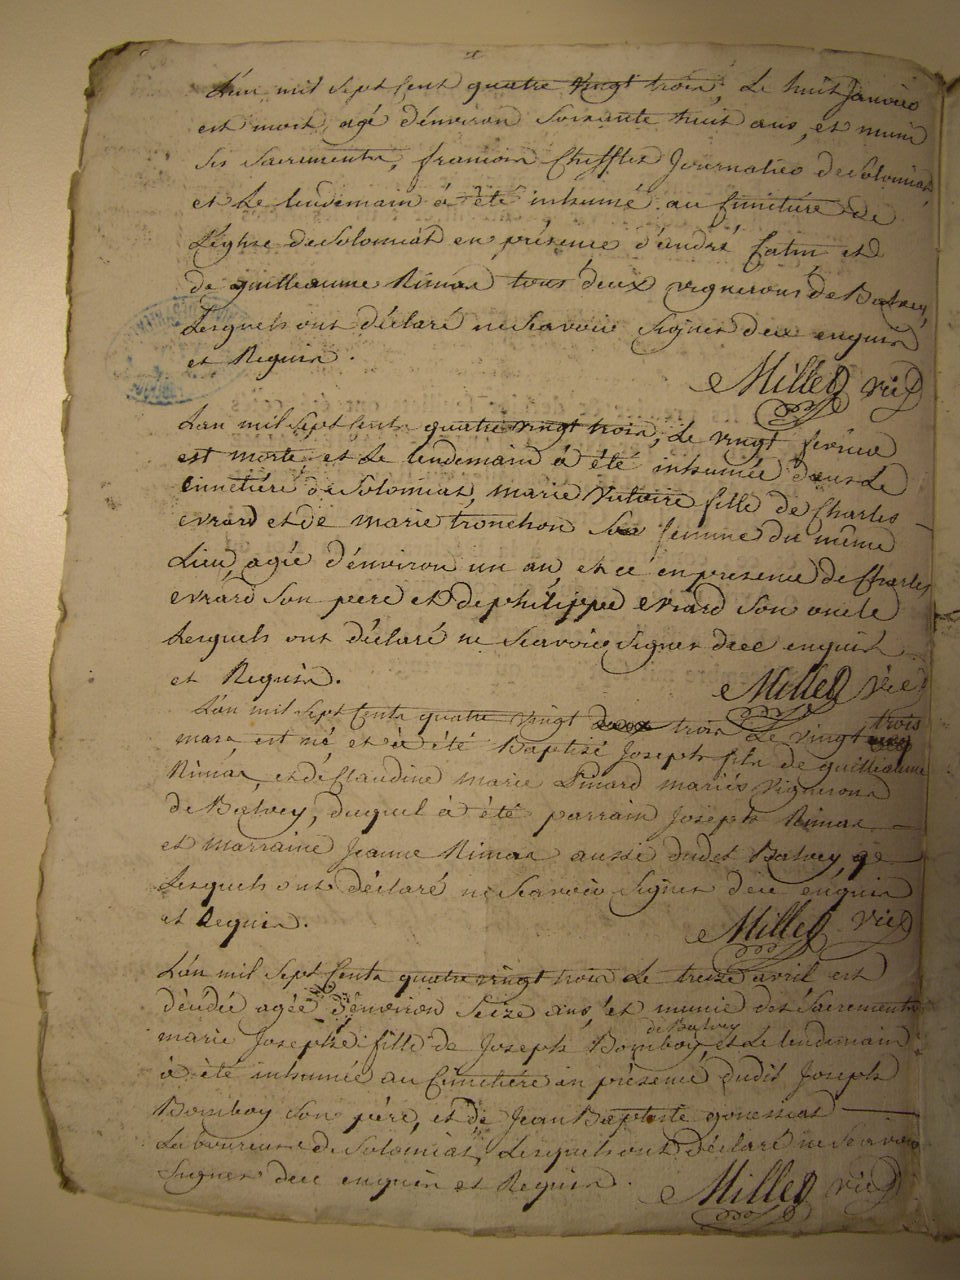 L'an mil sept cent quatre vingt trois, le huit janvier
est mort agé d'environ soixante huit ans, et muni
des sacrements, francois Chifflet journalier de Solomiat
et le lendemain à été inhumé au cimitiére de
l'église de Solomiat en présence d'andré et
de guilleaume Rimax tous deux vignerons de Balvey,
lesquels ont déclaré ne scavoir signer de ce enquis
et Requis.
Millet vic
L'an mil sept cents quatre vingt trois, le vingt fevrier
est morte et le lendemain à été inhumée dans le
cimetiére de Solomiat, marie victoire fille de Charles
evrard et de marie tronchon sa femme du même
lieu, agée d'environ un an et ce en presence de Charles
evrard son pere et de philippe evrard son oncle
lesquels ont déclaré ne scavoir signer de ce enquis
et Requis.
Millet vic
L'an mil sept cents quatre vingt trois le vingt trois
mars, est né et à été Baptisé Joseph fils de guilleaume
Rimax et de Claudine marie Pinard mariés vignerons
de Balvey, duquel à été parrain Joseph Rimax
et marraine Jeanne Rimax aussi dudet Balvey,
lesquels ont déclaré ne scavoir signer de ce enquis
et Requis.
Millet vic
L'an mil sept cents quatre vingt trois le treize avril est
décédée agée d'environ seize ans, et munie des sacrements
de Balvey
marie Josephe fille de Joseph Bomboy et le lendemain
à été inhumée au cimetiére en présence dudit Joseph
Bomboy son pére, et de Jean Baptiste gonessiat
laboureurs de Solomiat, lesquels ont déclaré ne scavoir
signer de ce enquis et Requis.
Millet vic